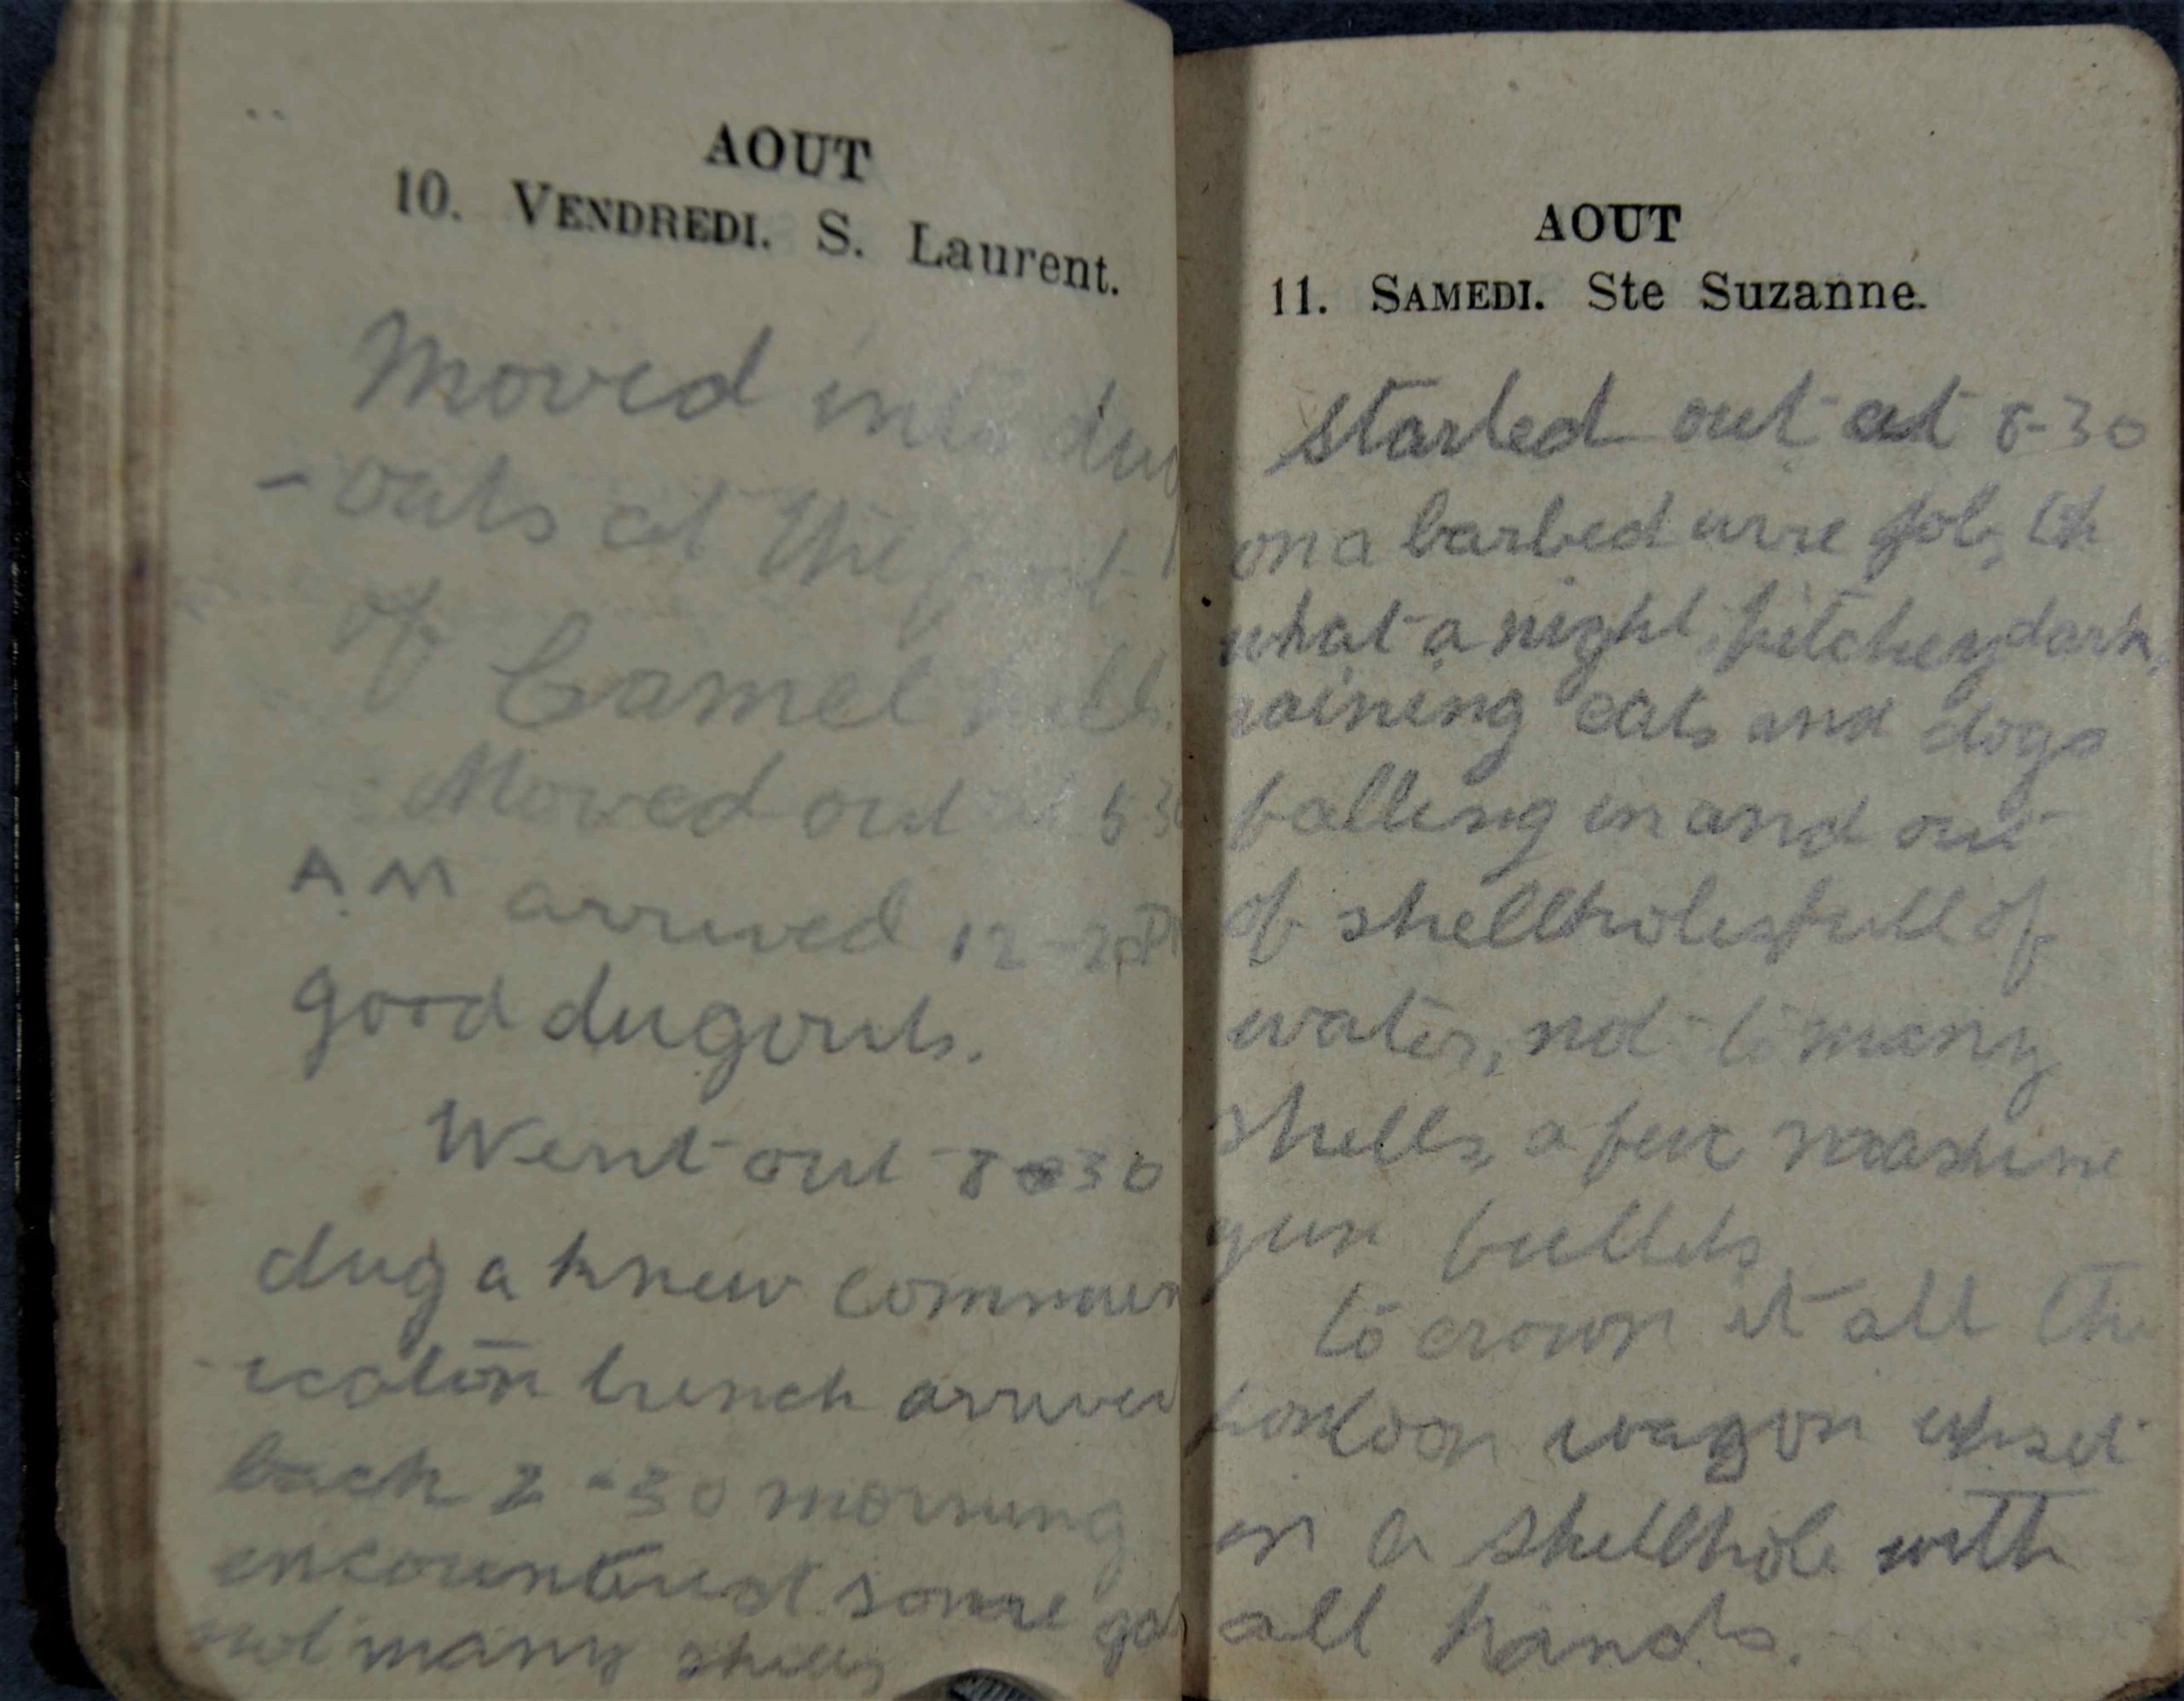 AOUT
10. VENDREDI. S. Laurent.
Moved into dug
-outs at the
of Camel
Moved out at 6-30
A.M arrived 12-20 P
good dugouts.
Went out 8-30
dug a knew commun
-ication trench arrived
back 2-30 morning
encountered some gas
not many shells
AOUT
11. SAMEDI. Ste Suzanne.
Started out at 8-30
on a barbed wire job,
what a night, pitchey dark,
raining cats and dogs
falling in and out
of shellholes full of
water, not to many
shells, a few mashine
gun bullets
to crown it all the
pontoon wagon upset
in a shellhole with
all hands.